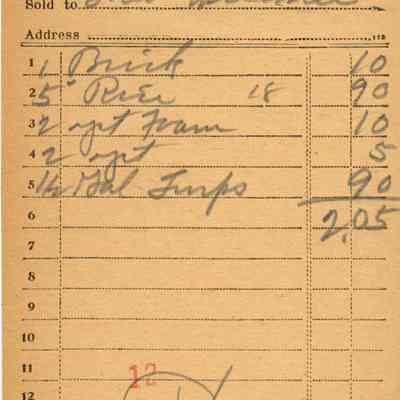 Sold to
Address
1 1 Brick 10
2 5 Rice 18 90
3 2 10
4 2 5
5 1/2 Gal Turps 90
6 2.05
7
8
9
10
11 12
12